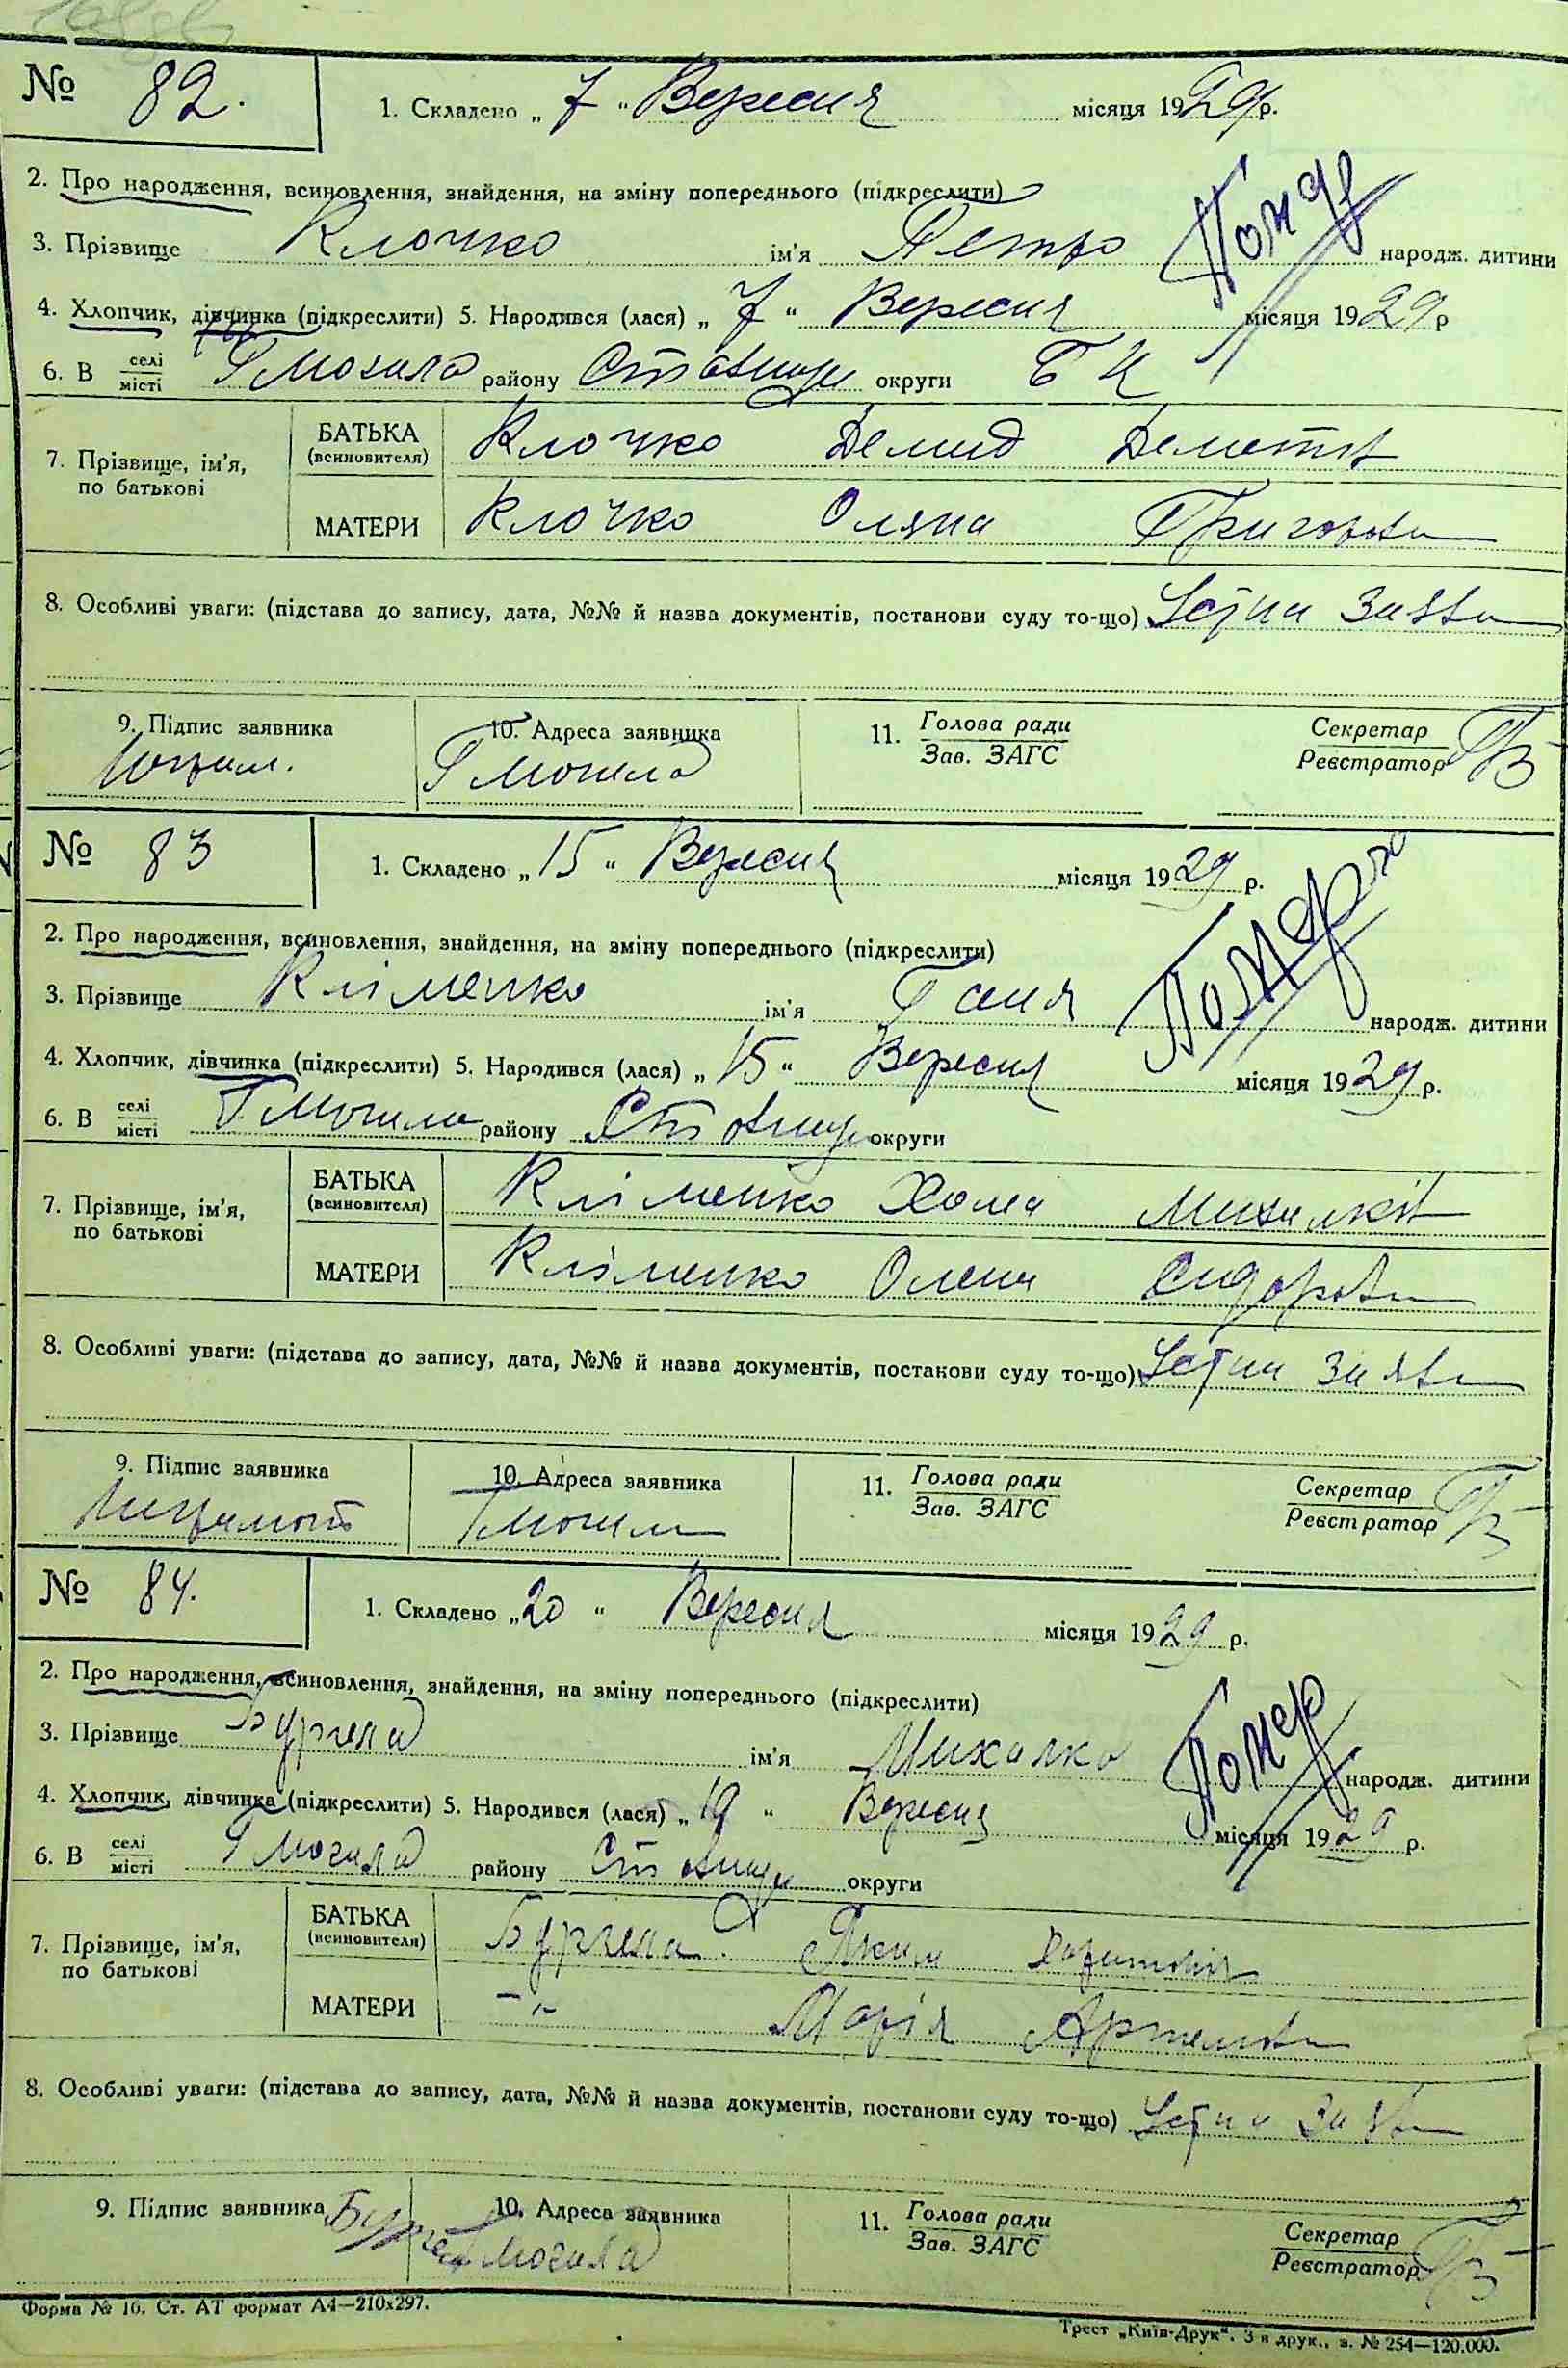 № 82. 1. Складено „ 7 “ Вересня місяця 1929 р.
2. Про народження, всиновлення, знайдення, на зміну попереднього (підкреслити)
3. Прізвище Клочко ім'я Петро народж. дитини
4. Хлопчик, дівчинка (підкреслити) 5. Народився (лася) „ 7 “ Вересня місяця 1929 р
6. В селі місті Гмогила району Ставище округи Б Ц
7. Прізвище, ім'я, по батькові
БАТЬКА (всиновителя) Клочко Демид
МАТЕРИ Клочко Оляна Григоров
8. Особливі уваги: (підстава до запису, дата, №№ й назва документів, постанови суду то-що) Устна заява
9. Підпис заявника
10. Адреса заявника Гмогила
11. Голова ради Зав. ЗАГС
Секретар Реєстратор
№ 83 1. Складено „ 15 “ Вересня місяця 1929 р.
2. Про народження, всиновлення, знайдення, на зміну попереднього (підкреслити)
3. Прізвище Кліменко ім'я Ганя народж. дитини
Помер
4. Хлопчик, дівчинка (підкреслити) 5. Народився (лася) „ 15 “ Вересня місяця 1929 р.
6. В селі місті Гмогила району Ставище округи
7. Прізвище, ім'я, по батькові
БАТЬКА (всиновителя) Кліменко Хома
МАТЕРИ Кліменко Олена Сидоров
8. Особливі уваги: (підстава до запису, дата, №№ й назва документів, постанови суду то-що) Устна заява
9. Підпис заявника
10. Адреса заявника Гмогила
11. Голова ради Зав. ЗАГС
Секретар Реєстратор
№ 84. 1. Складено „ 20 “ Вересня місяця 1929 р.
2. Про народження, всиновлення, знайдення, на зміну попереднього (підкреслити)
3. Прізвище ім'я Михалко народж. дитини
Помер
4. Хлопчик, дівчинка (підкреслити) 5. Народився (лася) „ 19 “ Вересня місяця 1929 р.
6. В селі місті Гмогила району Ставище округи
7. Прізвище, ім'я, по батькові
БАТЬКА (всиновителя) Яким
МАТЕРИ –„– Марія Артемов
8. Особливі уваги: (підстава до запису, дата, №№ й назва документів, постанови суду то-що) Устна заява
9. Підпис заявника
10. Адреса заявника Гмогила
11. Голова ради Зав. ЗАГС
Секретар Реєстратор
Форма № 16. Ст. АТ формат А4—210х297.
Трест „Київ-Друк“. 3 я друк., з. № 254—120.000.